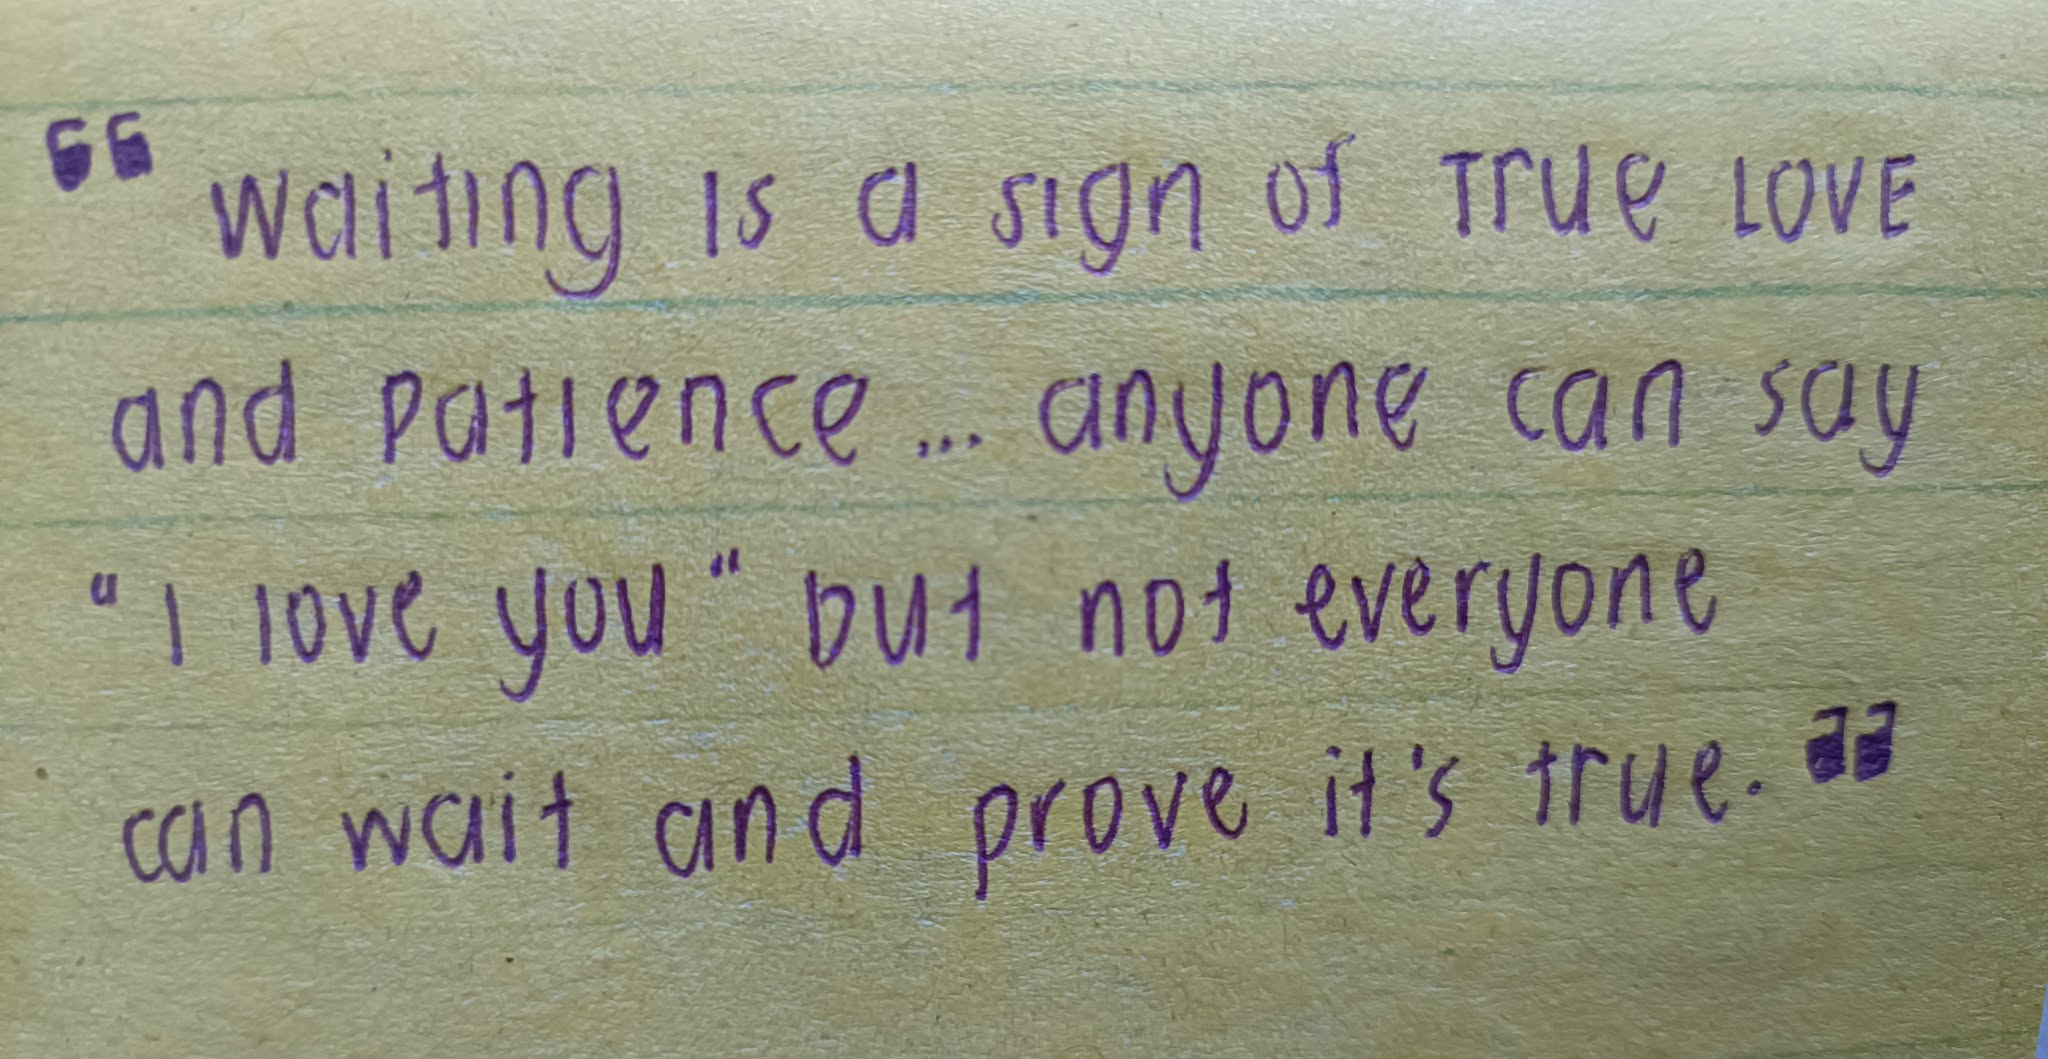 “ waiting is a sign of True LOVE
and patience... anyone can say
"I love you" but not everyone
can wait and prove it's true. ”